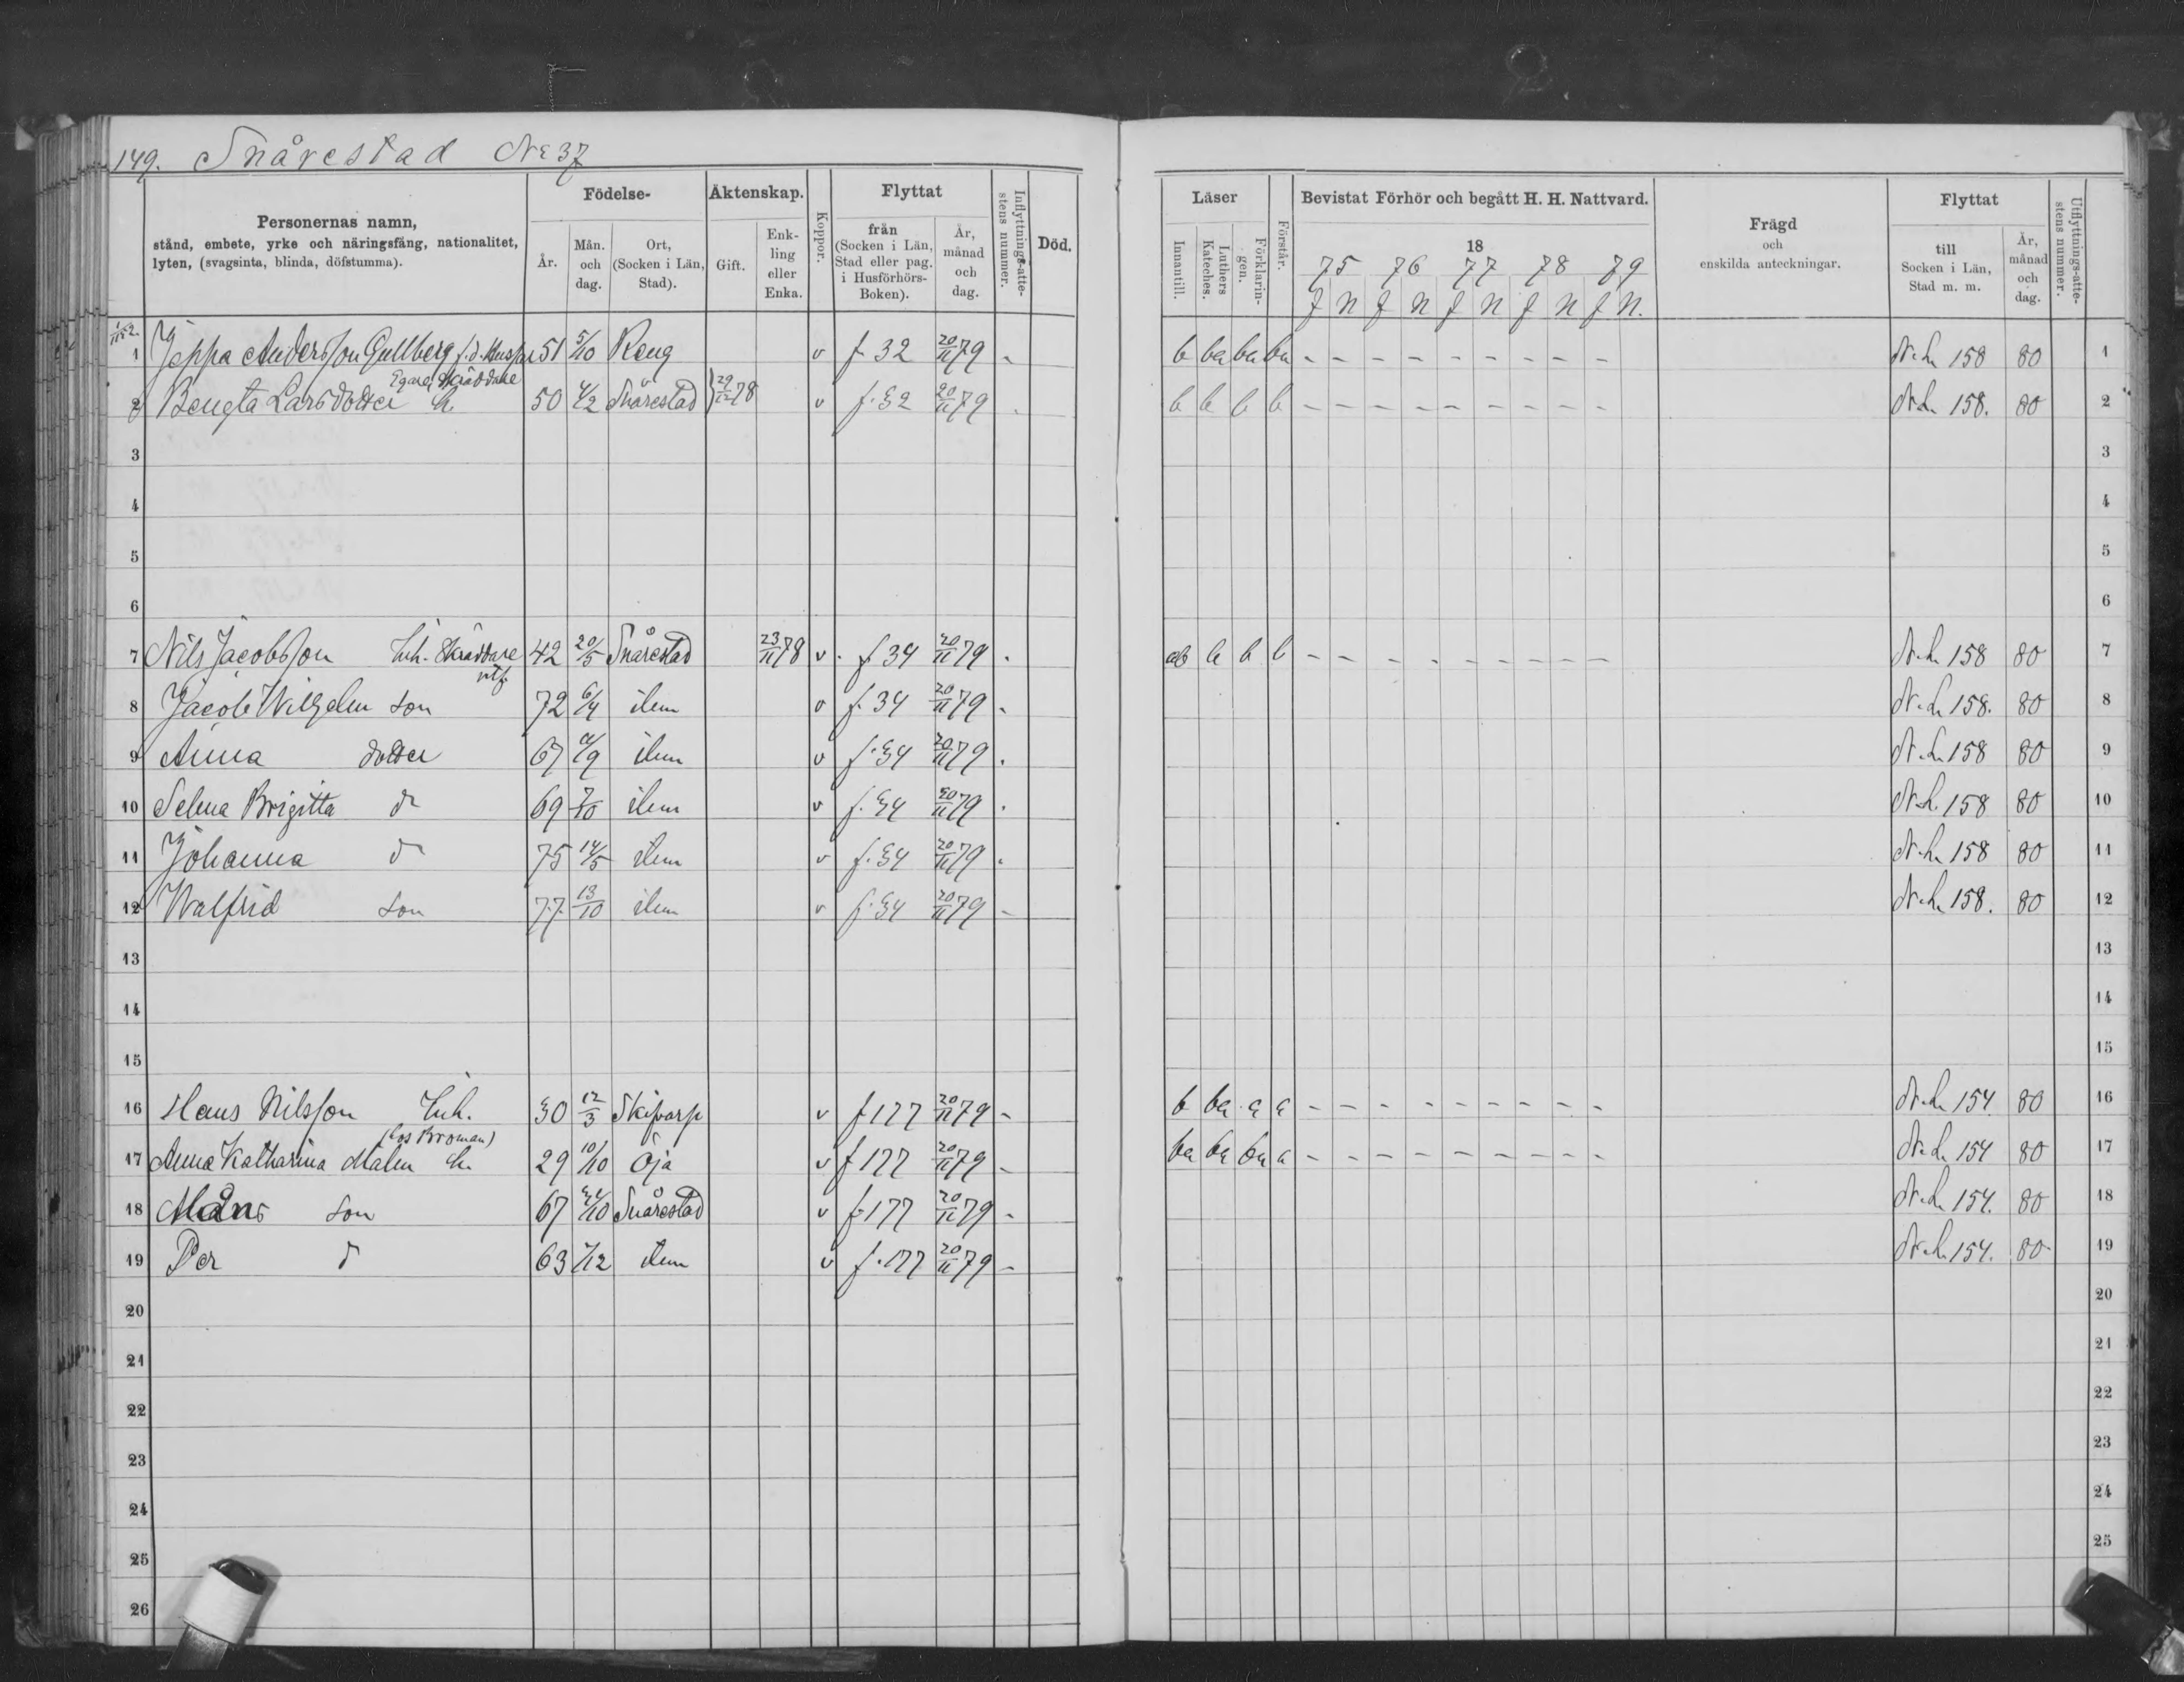 149. Snårestad No 37
Personernas namn,
stånd, embete, yrke och näringsfång, nationalitet,
lyten, (svagsinta, blinda, döfstumma).
Födelse-
År.
Mån. och dag.
Ort, (Socken i Län, Stad).
Äktenskap.
Gift.
Enk-ling eller Enka.
Koppor.
Flyttat
från (Socken i Län, Stad eller pag. i Husförhörs-Boken).
År, månad och dag.
Inflyttnings-atte-stens nummer.
Död.
Läser
Innantill.
Luthers Kateches.
Förklarin-gen.
Förstår.
Bevistat Förhör och begått H. H. Nattvard.
18
75 76 77 78 79
f n f n f n f n f n.
Frägd
och
enskilda anteckningar.
Flyttat
till Socken i Län, Stad m. m.
År, månad och dag.
Utflyttnings-atte-stens nummer.
1 Jeppa Andersson Gullberg f.d. Husar 51 5/10 Reng v f. 32 20/11 79 - b ba ba ba - - - - - - - - - N.h 158 80 1
Egare, Skräddare
2 Bengta Larsdotter h. 50 4/2 Snårestad } 29/12 78 v f. 32 20/11 79 . b b b b - - - - - - - - - N.h. 158. 80 2
3 3
4 4
5 5
6 6
7 Nils Jacobsson Inh. Skräddare 42 20/5 Snårestad 23/11 78 v . f 34 20/11 79 . ab b b b - - - - - - - - - N.h. 158 80 7
8 Jacob Wilhelm son 72 6/4 idem v f. 34 20/11 79 - N.h. 158. 80 8
9 Anna dotter 67 /9 idem v f. 34 20/11 79 . N.h. 158 80 9
10 Selma Brigitta dr 69 7/10 idem v f. 34 20/11 79 . N.h. 158 80 10
11 Johanna dr 75 14/5 idem v f. 34 20/11 79 . N.h. 158 80 11
12 Walfrid son 77 13/10 idem v f. 34 20/11 79 - N.h. 158. 80 12
13 13
14 14
15 15
16 Hans Nilsson Inh. 30 12/3 Skifvarp v f 177 20/11 79 - b ba a a - - - - - - - - - N.h. 154. 80 16
(hos Broman)
17 Anna Katharina Malm h. 29 10/10 Öja v f 177 20/11 79 - ba ba ba a - - - - - - - - - N.h. 154 80 17
18 Måns son 67 /10 Snårestad v f. 177 20/11 79 - N.h. 154. 80 18
19 Per d 63 /12 idem v f. 177 20/11 79 - N.h. 154. 80 19
20 20
21 21
22 22
23 23
24 24
25 25
26